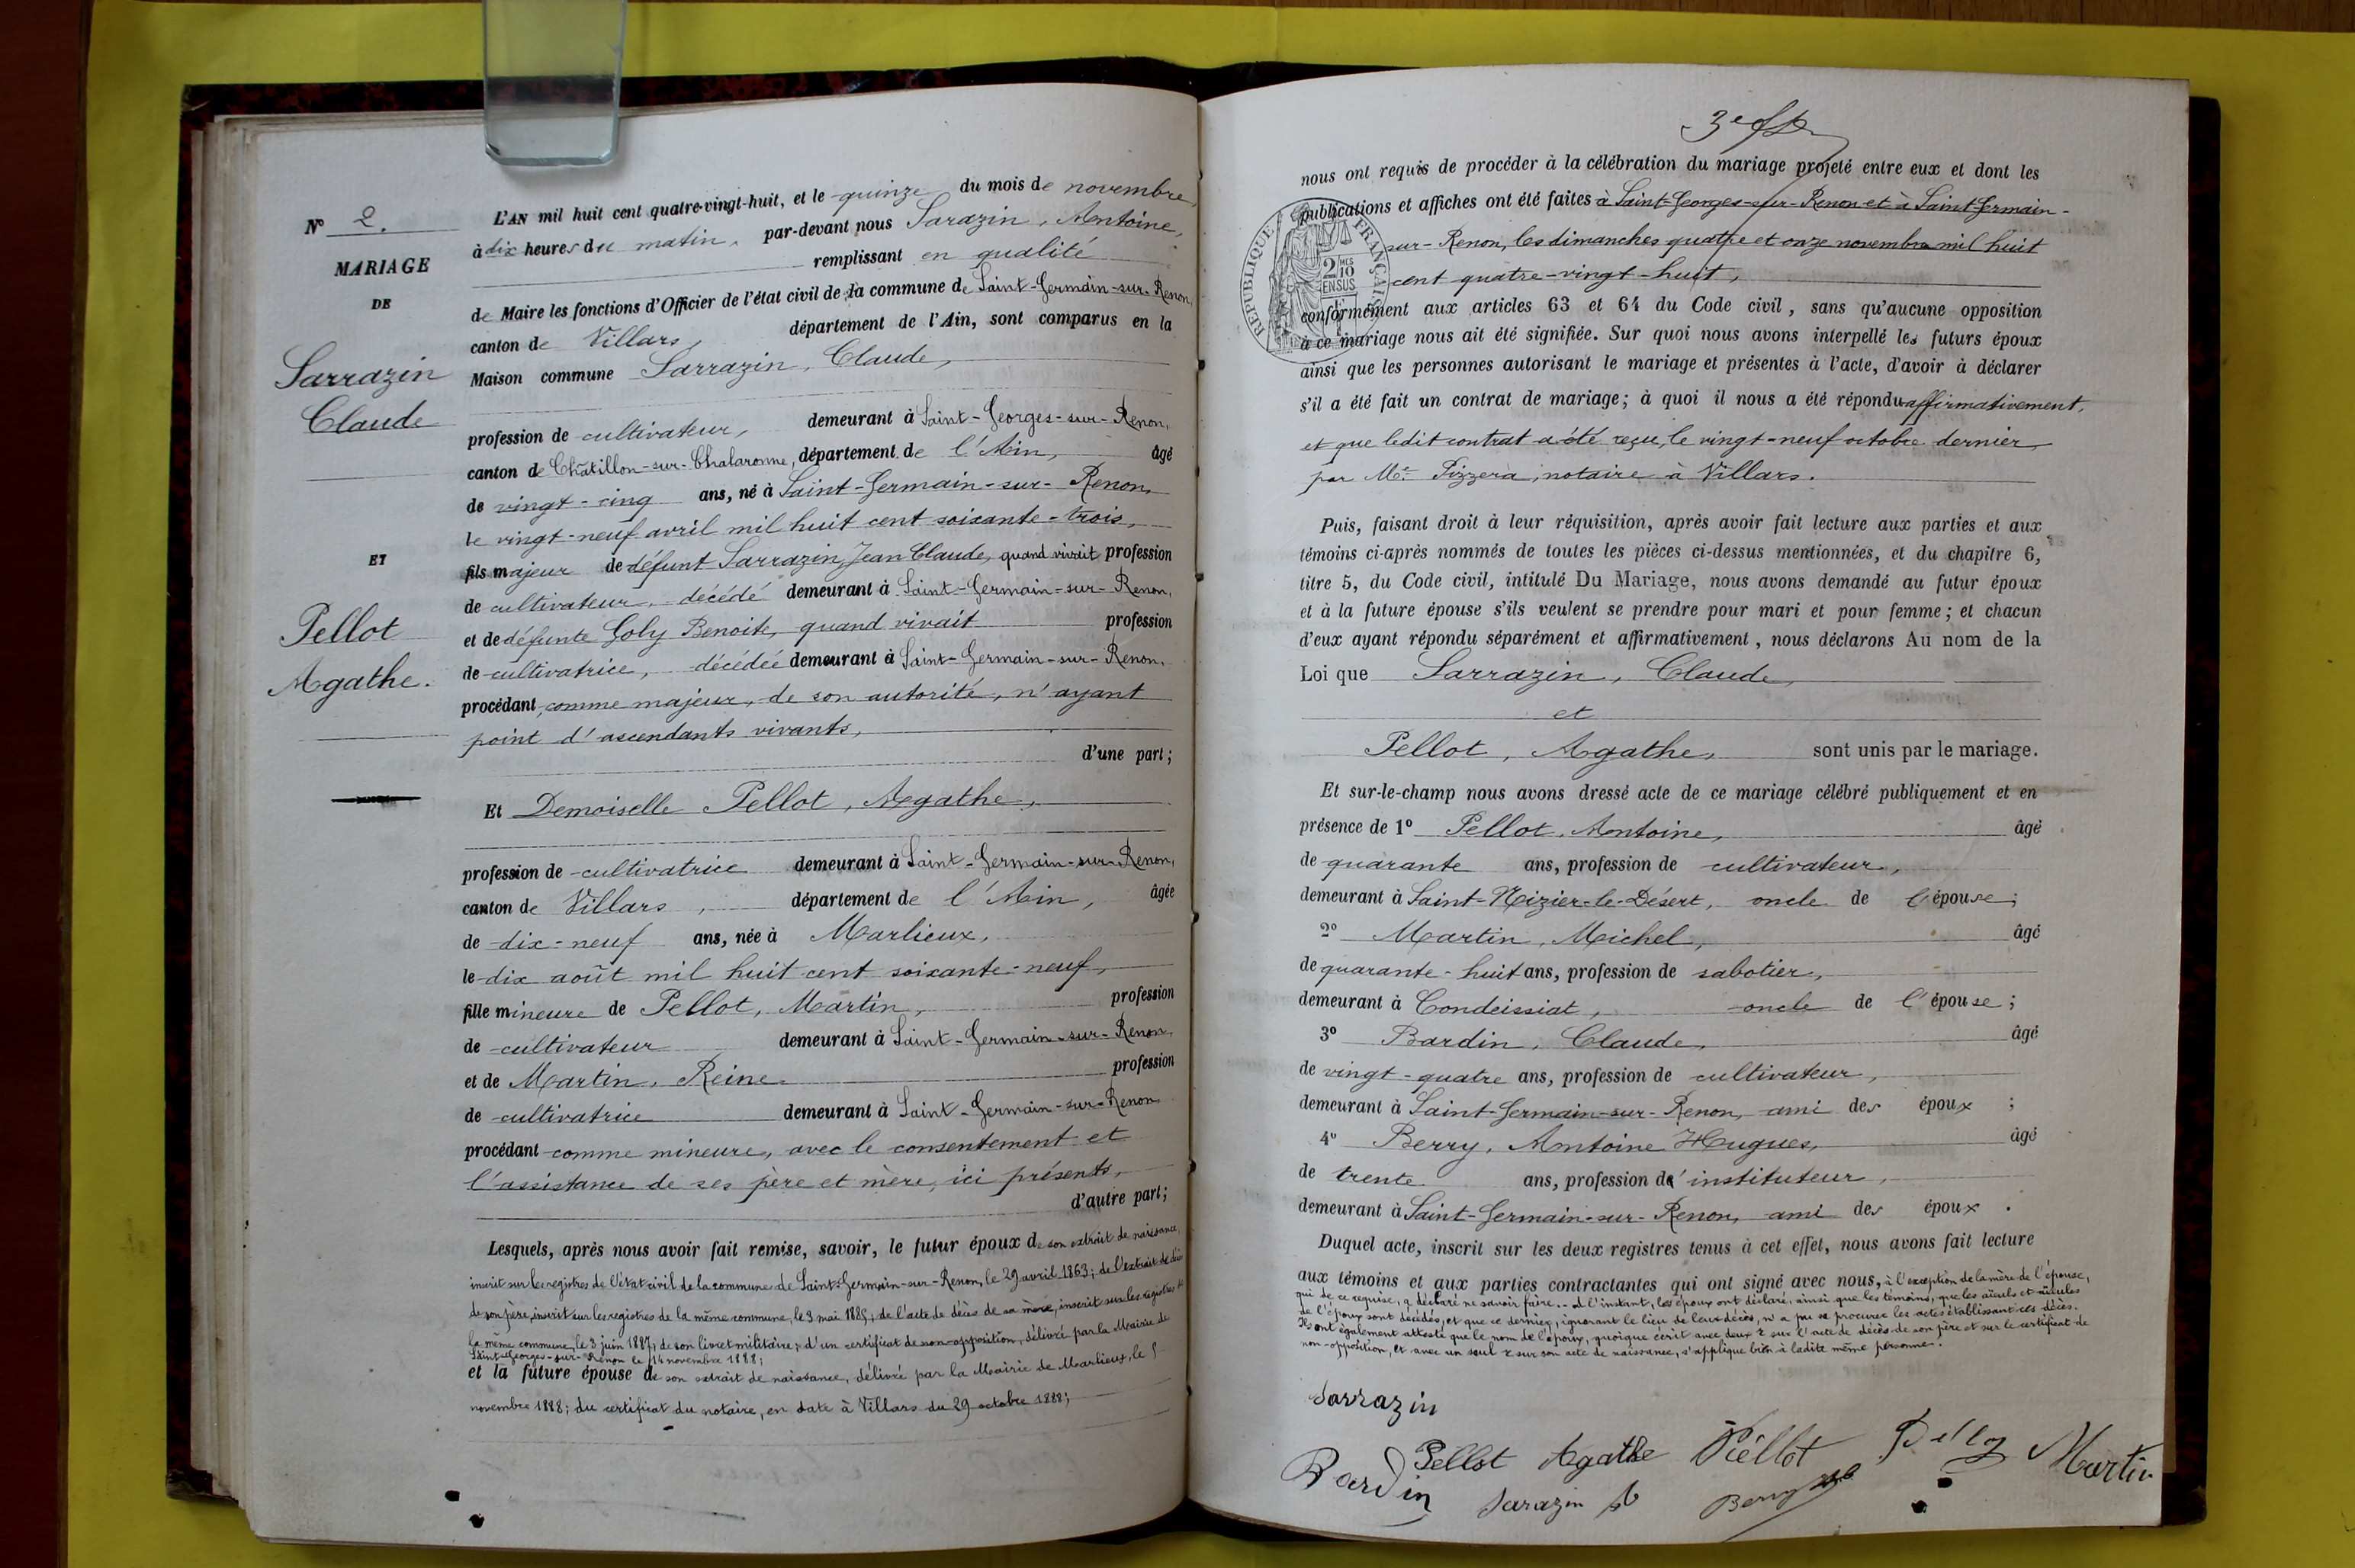 N° 2.
MARIAGE
DE
Sarrazin
Claude
ET
Pellot
Agathe.
L'AN mil huit cent quatre-vingt-huit, et le quinze du mois de novembre,
à dix heures du matin, par-devant nous Sarazin, Antoine,
remplissant en qualité
de Maire les fonctions d'Officier de l'état civil de la commune de Saint-Germain-sur-Renon,
canton de Villars, département de l'Ain, sont comparus en la
Maison commune Sarrazin, Claude,
profession de cultivateur, demeurant à Saint-Georges-sur-Renon,
canton de Châtillon-sur-Chalaronne, département de l'Ain, âgé
de vingt-cinq ans, né à Saint-Germain-sur-Renon,
le vingt-neuf avril mil huit cent soixante-trois,
fils majeur de défunt Sarrazin, Jean Claude, quand vivait profession
de cultivateur, décédé demeurant à Saint-Germain-sur-Renon,
et de défunte Goly Benoite, quand vivait profession
de cultivatrice, décédée demeurant à Saint-Germain-sur-Renon.
procédant comme majeur, de son autorité, n'ayant
point d'ascendants vivants,
d'une part;
Et Demoiselle Pellot, Agathe,
profession de cultivatrice demeurant à Saint-Germain-sur-Renon,
canton de Villars, département de l'Ain, âgée
de dix-neuf ans, née à Marlieux,
le dix août mil huit cent soixante-neuf,
fille mineure de Pellot, Martin, profession
de cultivateur demeurant à Saint-Germain-sur-Renon,
et de Martin, Reine profession
de cultivatrice demeurant à Saint-Germain-sur-Renon
procédant comme mineure, avec le consentement et
l'assistance de ses père et mère, ici présents,
d'autre part;
Lesquels, après nous avoir fait remise, savoir, le futur époux de son extrait de naissance,
inscrit sur les registres de l'état civil de la commune de Saint-Germain-sur-Renon, le 29 avril 1863; de l'extrait de décès
de son père, inscrit sur les registres de la même commune, le 9 mai 1885; de l'acte de décès de sa mère, inscrit sur les registres de
la même commune, le 3 juin 1887; de son livret militaire; d'un certificat de non-opposition, délivré par la Mairie de
Saint-Georges-sur-Renon le 14 novembre 1888;
et la future épouse de son extrait de naissance, délivré par la Mairie de Marlieux, le 5
novembre 1888; du certificat du notaire, en date à Villars du 29 octobre 1888;
3e
nous ont requis de procéder à la célébration du mariage projeté entre eux et dont les
publications et affiches ont été faites à Saint-Georges-sur-Renon et à Saint-Germain-
sur-Renon, les dimanches quatre et onze novembre mil huit
cent quatre-vingt-huit,
RÉPUBLIQUE FRANÇAISE
2 MES
10
EN SUS
conformément aux articles 63 et 64 du Code civil, sans qu'aucune opposition
à ce mariage nous ait été signifiée. Sur quoi nous avons interpellé les futurs époux
ainsi que les personnes autorisant le mariage et présentes à l'acte, d'avoir à déclarer
s'il a été fait un contrat de mariage; à quoi il nous a été répondu affirmativement,
et que ledit contrat a été reçu, le vingt-neuf octobre dernier
par Me Pizzera, notaire à Villars.
Puis, faisant droit à leur réquisition, après avoir fait lecture aux parties et aux
témoins ci-après nommés de toutes les pièces ci-dessus mentionnées, et du chapitre 6,
titre 5, du Code civil, intitulé Du Mariage, nous avons demandé au futur époux
et à la future épouse s'ils veulent se prendre pour mari et pour femme; et chacun
d'eux ayant répondu séparément et affirmativement, nous déclarons Au nom de la
Loi que Sarrazin, Claude,
et
Pellot, Agathe, sont unis par le mariage.
Et sur-le-champ nous avons dressé acte de ce mariage célébré publiquement et en
présence de 1° Pellot, Antoine, âgé
de quarante ans, profession de cultivateur,
demeurant à Saint-Nizier-le-Désert, oncle de l'épouse;
2° Martin, Michel, âgé
de quarante-huit ans, profession de sabotier,
demeurant à Condeissiat, oncle de l'épouse;
3° Bardin, Claude, âgé
de vingt-quatre ans, profession de cultivateur,
demeurant à Saint-Germain-sur-Renon, ami des époux;
4° Berry, Antoine Hugues, âgé
de trente ans, profession d'instituteur,
demeurant à Saint-Germain-sur-Renon, ami des époux.
Duquel acte, inscrit sur les deux registres tenus à cet effet, nous avons fait lecture
aux témoins et aux parties contractantes qui ont signé avec nous, à l'exception de la mère de l'épouse,
qui de ce requise, a déclaré ne savoir faire. - A l'instant, les époux ont déclaré, ainsi que les témoins, que les aïeuls et aïeules
de l'époux sont décédés, et que ce dernier, ignorant le lieu de leurs décès, n'a pu se procurer les actes établissant ces décès.
Ils ont également attesté que le nom de l'époux, quoique écrit avec deux r sur l'acte de décès de son père et sur le certificat de
non-opposition, et avec un seul r sur son acte de naissance, s'applique bien à ladite même personne.
Sarrazin
Pellot Agathe Pèllot Martin
Bardin Sarazin Berry